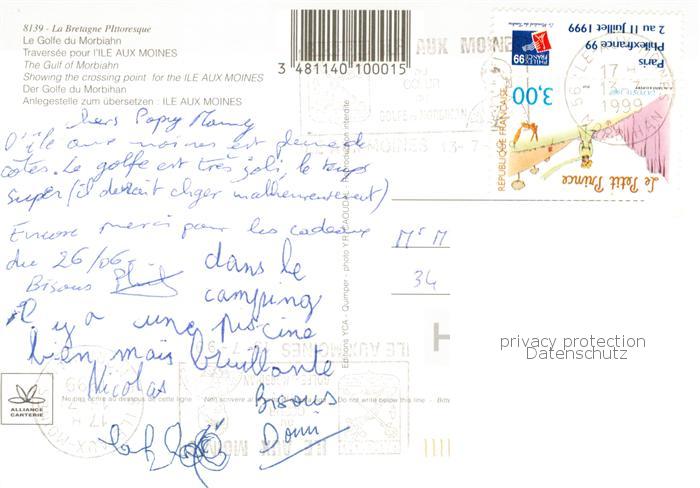 8139 - La Bretagne Pittoresque
Le Golfe du Morbiahn
Traversée pour l'ILE AUX MOINES
The Gulf of Morbiahn
Showing the crossing point for the ILE AUX MOINES
Der Golfe du Morbihan
Anlegestelle zum übersetzen : ILE AUX MOINES
3 481140 100015
Chers Papy Mamy
L'île aux moines est pleine de
côtes. Le golfe est très joli, le temps
super (il devrait changer malheureusement)
Encore merci pour les cadeaux
du 26/06.
Bisous
dans le
camping
il y a une piscine
bien mais bruillante
Nicolas
Bisous
Domi
Mr M
34
Editions YCA - Quimper - photo Y.R. CAOUDAL - Reproduction interdite
ALLIANCE
CARTERIE
No pas écrire au dessous de cette ligne
Do not write below this line
Paris
Philexfrance 99
2 au 11 juillet 1999
3,00
REPUBLIQUE FRANÇAISE
Le Petit Prince
PHILEX
FRANCE
99
17 H
1999
ILE AUX MOINES
GOLFE DU MORBIHAN
13-7
privacy protection
Datenschutz